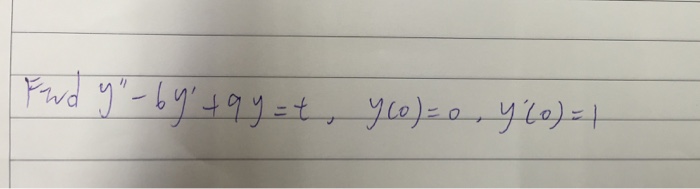 Find y'' - 6y' + 9y = t, y(0) = 0, y'(0) = 1